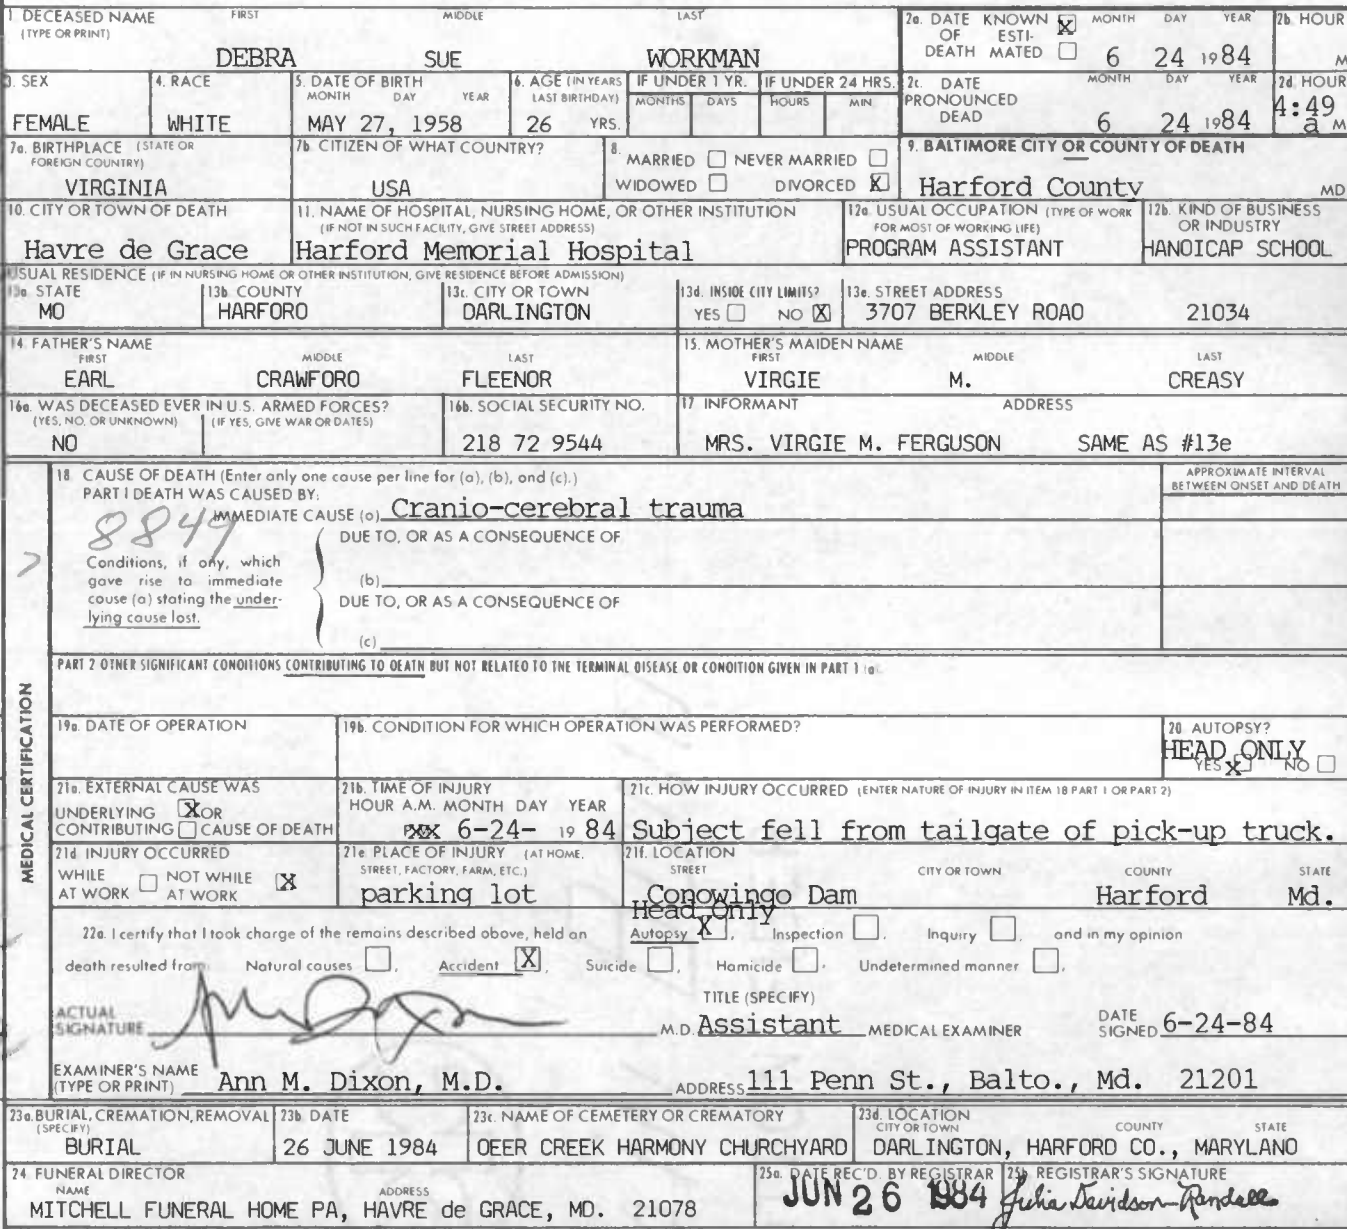 1. DECEASED NAME FIRST MIDDLE LAST
(TYPE OR PRINT)
DEBRA SUE WORKMAN
2a. DATE KNOWN X MONTH DAY YEAR
OF ESTI-
DEATH MATED 6 24 1984
2b. HOUR
M
3. SEX
FEMALE
4. RACE
WHITE
5. DATE OF BIRTH
MONTH DAY YEAR
MAY 27, 1958
6. AGE (IN YEARS
LAST BIRTHDAY)
26 YRS.
IF UNDER 1 YR.
MONTHS DAYS
IF UNDER 24 HRS.
HOURS MIN
2c. DATE MONTH DAY YEAR
PRONOUNCED
DEAD 6 24 1984
2d. HOUR
4:49
a M
7a. BIRTHPLACE (STATE OR
FOREIGN COUNTRY)
VIRGINIA
7b. CITIZEN OF WHAT COUNTRY?
USA
8.
MARRIED NEVER MARRIED
WIDOWED DIVORCED X
9. BALTIMORE CITY OR COUNTY OF DEATH
Harford County MD
10. CITY OR TOWN OF DEATH
Havre de Grace
11. NAME OF HOSPITAL, NURSING HOME, OR OTHER INSTITUTION
(IF NOT IN SUCH FACILITY, GIVE STREET ADDRESS)
Harford Memorial Hospital
12a. USUAL OCCUPATION (TYPE OF WORK
FOR MOST OF WORKING LIFE)
PROGRAM ASSISTANT
12b. KIND OF BUSINESS
OR INDUSTRY
HANDICAP SCHOOL
USUAL RESIDENCE (IF IN NURSING HOME OR OTHER INSTITUTION, GIVE RESIDENCE BEFORE ADMISSION)
13a. STATE
MD
13b. COUNTY
HARFORD
13c. CITY OR TOWN
DARLINGTON
13d. INSIDE CITY LIMITS?
YES NO X
13e. STREET ADDRESS
3707 BERKLEY ROAD 21034
14. FATHER'S NAME
FIRST MIDDLE LAST
EARL CRAWFORD FLEENOR
15. MOTHER'S MAIDEN NAME
FIRST MIDDLE LAST
VIRGIE M. CREASY
16a. WAS DECEASED EVER IN U.S. ARMED FORCES?
(YES, NO, OR UNKNOWN) (IF YES, GIVE WAR OR DATES)
NO
16b. SOCIAL SECURITY NO.
218 72 9544
17 INFORMANT ADDRESS
MRS. VIRGIE M. FERGUSON SAME AS #13e
MEDICAL CERTIFICATION
18. CAUSE OF DEATH (Enter only one cause per line for (a), (b), and (c).)
PART I DEATH WAS CAUSED BY:
IMMEDIATE CAUSE (a) Cranio-cerebral trauma
8849
APPROXIMATE INTERVAL
BETWEEN ONSET AND DEATH
DUE TO, OR AS A CONSEQUENCE OF
Conditions, if any, which
gave rise to immediate
cause (a) stating the under-
lying cause last.
(b)
DUE TO, OR AS A CONSEQUENCE OF
(c)
PART 2 OTHER SIGNIFICANT CONDITIONS CONTRIBUTING TO DEATH BUT NOT RELATED TO THE TERMINAL DISEASE OR CONDITION GIVEN IN PART 1 (a).
19a. DATE OF OPERATION
19b. CONDITION FOR WHICH OPERATION WAS PERFORMED?
20. AUTOPSY?
HEAD ONLY
YES X NO
21a. EXTERNAL CAUSE WAS
UNDERLYING X OR
CONTRIBUTING CAUSE OF DEATH
21b. TIME OF INJURY
HOUR A.M. MONTH DAY YEAR
6-24- 1984
21c. HOW INJURY OCCURRED (ENTER NATURE OF INJURY IN ITEM 18 PART 1 OR PART 2)
Subject fell from tailgate of pick-up truck.
21d. INJURY OCCURRED
WHILE NOT WHILE
AT WORK AT WORK X
21e. PLACE OF INJURY (AT HOME,
STREET, FACTORY, FARM, ETC.)
parking lot
21f. LOCATION
STREET CITY OR TOWN COUNTY STATE
Conowingo Dam Harford Md.
Head Only
22a. I certify that I took charge of the remains described above, held an Autopsy X, Inspection, Inquiry, and in my opinion
death resulted from: Natural causes, Accident X, Suicide, Homicide, Undetermined manner.
ACTUAL
SIGNATURE
TITLE (SPECIFY)
M.D. Assistant MEDICAL EXAMINER
DATE
SIGNED 6-24-84
EXAMINER'S NAME
(TYPE OR PRINT) Ann M. Dixon, M.D. ADDRESS 111 Penn St., Balto., Md. 21201
23a. BURIAL, CREMATION, REMOVAL
(SPECIFY)
BURIAL
23b. DATE
26 JUNE 1984
23c. NAME OF CEMETERY OR CREMATORY
DEER CREEK HARMONY CHURCHYARD
23d. LOCATION
CITY OR TOWN COUNTY STATE
DARLINGTON, HARFORD CO., MARYLAND
24. FUNERAL DIRECTOR
NAME ADDRESS
MITCHELL FUNERAL HOME PA, HAVRE de GRACE, MD. 21078
25a. DATE REC'D. BY REGISTRAR
JUN 26 1984
25b. REGISTRAR'S SIGNATURE
Julia Davidson-Randall